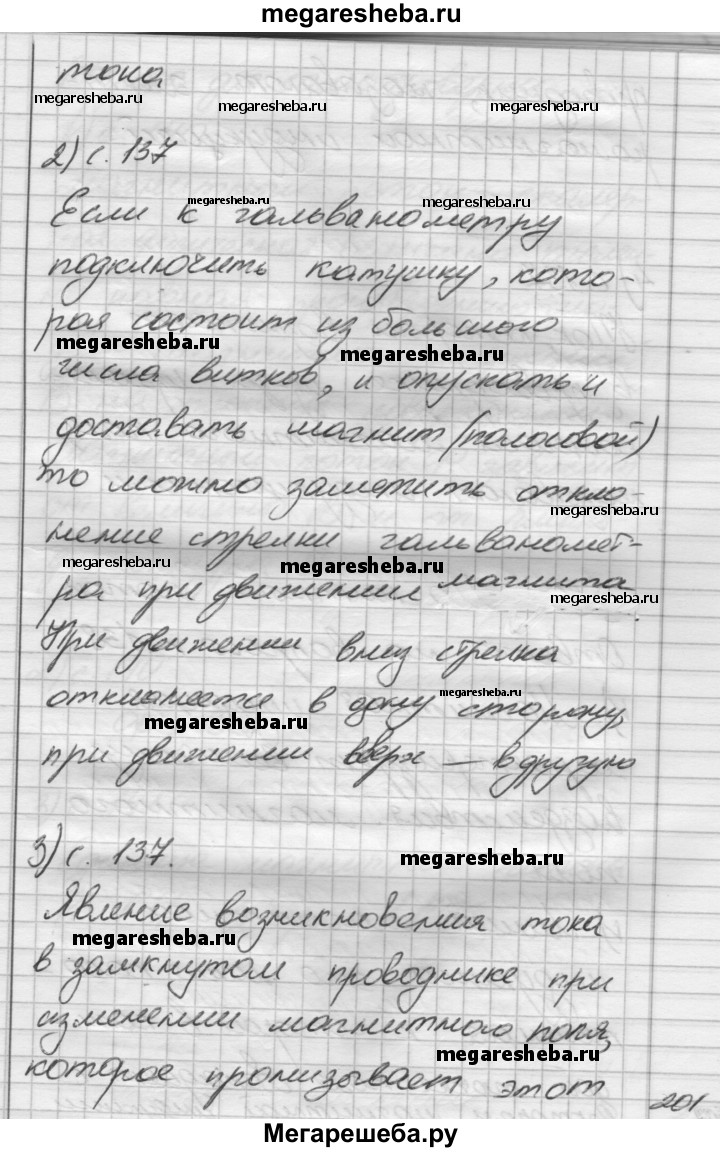 megaresheba.ru
тока
megaresheba.ru megaresheba.ru megaresheba.ru
2) с. 137
megaresheba.ru megaresheba.ru
Если к гальванометру
подключить катушку, кото-
рая состоит из большого
megaresheba.ru megaresheba.ru
числа витков, и опускать и
доставать магнит (полосовой)
то можно заметить откло-
megaresheba.ru
нение стрелки гальваномет-
megaresheba.ru megaresheba.ru
ра при движении магнита
megaresheba.ru
При движении вниз стрелка
отклоняется в одну сторону,
megaresheba.ru megaresheba.ru
при движении вверх — в другую
3) с. 137.
megaresheba.ru
Явление возникновения тока
megaresheba.ru
в замкнутом проводнике при
изменении магнитного поля,
megaresheba.ru
которое пронизывает этот
201
Мегарешеба.ру